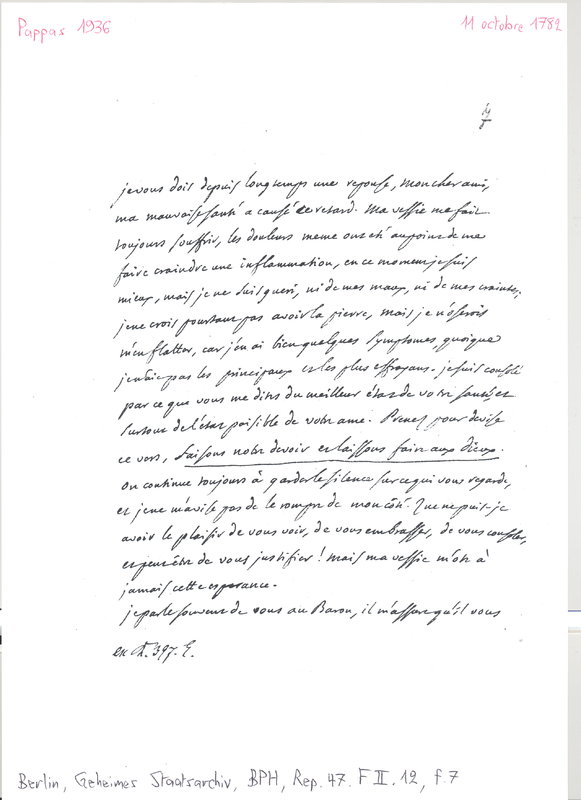 Pappas 1936
11 octobre 1782
je vous dois depuis longtemps une reponse, mon cher ami,
ma mauvaise santé a causé ce retard. Ma vessie me fait
toujours souffrir, les douleurs meme ont été au point de me
faire craindre une inflammation, en ce moment je suis
mieux, mais je ne suis gueri, ni de mes maux, ni de mes craintes,
je ne crois pourtant pas avoir la pierre, mais je n'oserois
m'en flatter, car j'en ai bien quelques symptomes quoique
je n'aie pas les principaux et les plus effrayans. je suis consolé
par ce que vous me dites du meilleur état de votre santé, et
surtout de l'état paisible de votre ame. Prenez pour devise
ce vers, faisons notre devoir et laissons faire aux dieux.
on continue toujours à garder le silence sur ce qui vous regarde,
et je ne m'avise pas de le rompre de mon côté. Que ne puis-je
avoir le plaisir de vous voir, de vous embrasser, de vous consoler,
et peut être de vous justifier ! mais ma vessie m'ôte à
jamais cette esperance.
je parle souvent de vous au Baron, il m'assure qu'il vous
Berlin, Geheimes Staatsarchiv, BPH, Rep. 47. F II. 12, f. 7